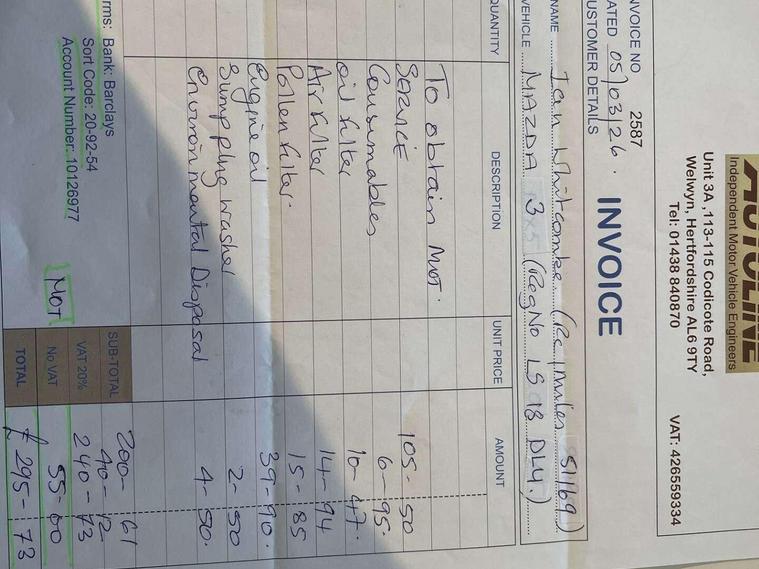 AUTOLINE
Independent Motor Vehicle Engineers
Unit 3A ,113-115 Codicote Road,
Welwyn, Hertfordshire AL6 9TY
Tel: 01438 840870
VAT: 426559334
INVOICE
NVOICE NO 2587
ATED 05/03/26.
USTOMER DETAILS
NAME Ian Whitcombe (Rec/miles 51169)
VEHICLE MAZDA 3 (Reg No LS 18 DLY.)
QUANTITY DESCRIPTION UNIT PRICE AMOUNT
To obtain MOT.
SERVICE 105-50
Consumables 6-95.
oil filter 10-47.
Air filter 14-94
Pollen filter. 15-85
Engine oil 39-90
Sump plug washer 2-50
Environmental Disposal 4-50.
SUB-TOTAL 200-61
rms: Bank: Barclays VAT 20% 40-12
Sort Code: 20-92-54 240-73
Account Number: 10126977 MOT No VAT 55-00
TOTAL £295-73